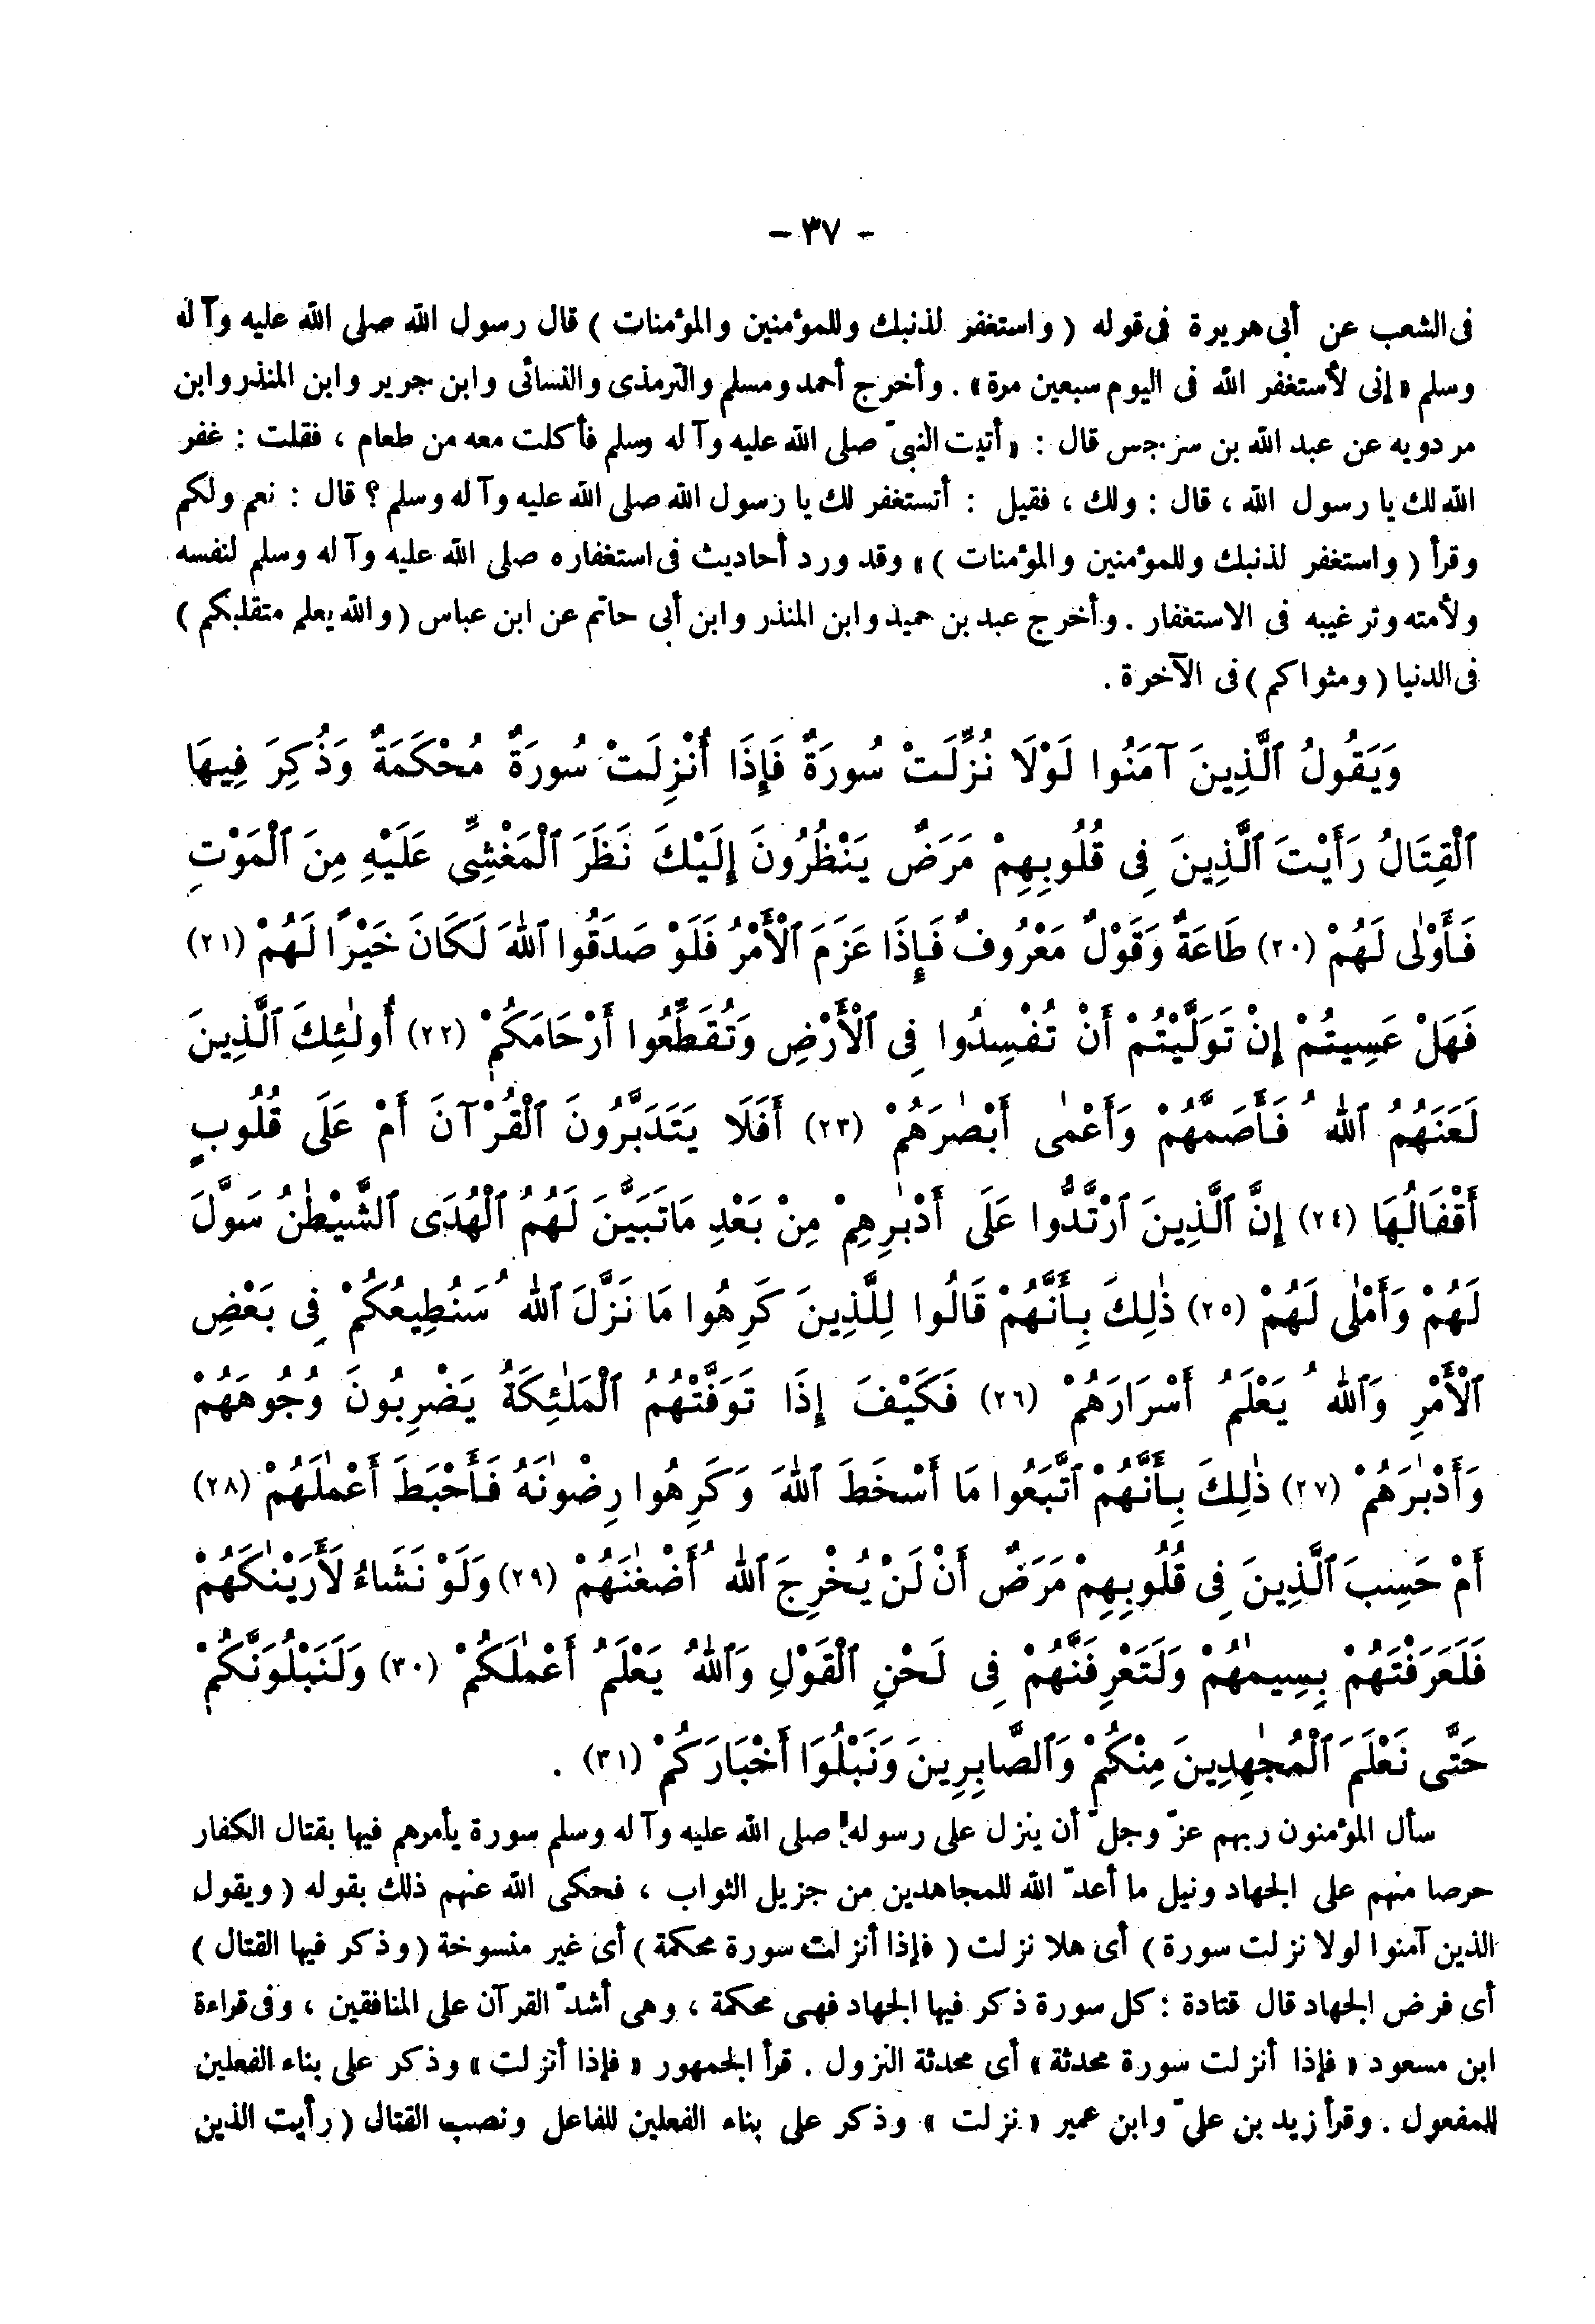 - ٣٧ -
فى الشعب عن أبى هريرة فى قوله ( واستغفر لذنبك وللمؤمنين والمؤمنات ) قال رسول الله صلى الله عليه وآله
وسلم « إنى لأستغفر الله فى اليوم سبعين مرة » . وأخرج أحمد ومسلم والترمذى والنسائى وابن جرير وابن المنذر وابن
مردويه عن عبد الله بن سرجس قال : « أتيت النبىّ صلى الله عليه وآله وسلم فأكلت معه من طعام ، فقلت : غفر
الله لك يا رسول الله ، قال : ولك ، فقيل : أتستغفر لك يا رسول الله صلى الله عليه وآله وسلم ؟ قال : نعم ولكم
وقرأ ( واستغفر لذنبك وللمؤمنين والمؤمنات ) » وقد ورد أحاديث فى استغفاره صلى الله عليه وآله وسلم لنفسه
ولأمته وترغيبه فى الاستغفار . وأخرج عبد بن حميد وابن المنذر وابن أبى حاتم عن ابن عباس ( والله يعلم متقلبكم )
فى الدنيا ( ومثواكم ) فى الآخرة .
وَيَقُولُ ٱلَّذِينَ آمَنُوا لَوْلَا نُزِّلَتْ سُورَةٌ فَإِذَا أُنْزِلَتْ سُورَةٌ مُحْكَمَةٌ وَذُكِرَ فِيهَا
ٱلْقِتَالُ رَأَيْتَ ٱلَّذِينَ فِى قُلُوبِهِمْ مَرَضٌ يَنْظُرُونَ إِلَيْكَ نَظَرَ ٱلْمَغْشِىِّ عَلَيْهِ مِنَ ٱلْمَوْتِ
فَأَوْلٰى لَهُمْ (٢٠) طَاعَةٌ وَقَوْلٌ مَعْرُوفٌ فَإِذَا عَزَمَ ٱلْأَمْرُ فَلَوْ صَدَقُوا ٱللهَ لَكَانَ خَيْرًا لَهُمْ (٢١)
فَهَلْ عَسِيتُمْ إِنْ تَوَلَّيْتُمْ أَنْ تُفْسِدُوا فِى ٱلْأَرْضِ وَتُقَطِّعُوا أَرْحَامَكُمْ (٢٢) أُولٰئِكَ ٱلَّذِينَ
لَعَنَهُمُ ٱللهُ فَأَصَمَّهُمْ وَأَعْمٰى أَبْصٰرَهُمْ (٢٣) أَفَلَا يَتَدَبَّرُونَ ٱلْقُرْآنَ أَمْ عَلَى قُلُوبٍ
أَقْفَالُهَا (٢٤) إِنَّ ٱلَّذِينَ ٱرْتَدُّوا عَلَى أَدْبٰرِهِمْ مِنْ بَعْدِ مَاتَبَيَّنَ لَهُمُ ٱلْهُدَى ٱلشَّيْطٰنُ سَوَّلَ
لَهُمْ وَأَمْلٰى لَهُمْ (٢٥) ذٰلِكَ بِأَنَّهُمْ قَالُوا لِلَّذِينَ كَرِهُوا مَا نَزَّلَ ٱللهُ سَنُطِيعُكُمْ فِى بَعْضِ
ٱلْأَمْرِ وَٱللهُ يَعْلَمُ أَسْرَارَهُمْ (٢٦) فَكَيْفَ إِذَا تَوَفَّتْهُمُ ٱلْمَلٰئِكَةُ يَضْرِبُونَ وُجُوهَهُمْ
وَأَدْبٰرَهُمْ (٢٧) ذٰلِكَ بِأَنَّهُمْ ٱتَّبَعُوا مَا أَسْخَطَ ٱللهَ وَكَرِهُوا رِضْوٰنَهُ فَأَحْبَطَ أَعْمٰلَهُمْ (٢٨)
أَمْ حَسِبَ ٱلَّذِينَ فِى قُلُوبِهِمْ مَرَضٌ أَنْ لَنْ يُخْرِجَ ٱللهُ أَضْغٰنَهُمْ (٢٩) وَلَوْ نَشَاءُ لَأَرَيْنٰكَهُمْ
فَلَعَرَفْتَهُمْ بِسِيمٰهُمْ وَلَتَعْرِفَنَّهُمْ فِى لَحْنِ ٱلْقَوْلِ وَٱللهُ يَعْلَمُ أَعْمٰلَكُمْ (٣٠) وَلَنَبْلُوَنَّكُمْ
حَتَّى نَعْلَمَ ٱلْمُجٰهِدِينَ مِنْكُمْ وَٱلصَّابِرِينَ وَنَبْلُوَا أَخْبَارَكُمْ (٣١) .
سأل المؤمنون ربهم عزّ وجلّ أن ينزل على رسوله صلى الله عليه وآله وسلم سورة يأمرهم فيها بقتال الكفار
حرصا منهم على الجهاد ونيل ما أعدّ الله للمجاهدين من جزيل الثواب ، فحكى الله عنهم ذلك بقوله ( ويقول
الذين آمنوا لولا نزلت سورة ) أى هلا نزلت ( فإذا أنزلت سورة محكمة ) أى غير منسوخة ( وذكر فيها القتال )
أى فرض الجهاد قال قتادة : كل سورة ذكر فيها الجهاد فهى محكمة ، وهى أشدّ القرآن على المنافقين ، وفى قراءة
ابن مسعود « فإذا أنزلت سورة محدثة » أى محدثة النزول . قرأ الجمهور « فإذا أنزلت » وذكر على بناء الفعلين
للمفعول . وقرأ زيد بن علىّ وابن عمير « نزلت » وذكر على بناء الفعلين للفاعل ونصب القتال ( رأيت الذين